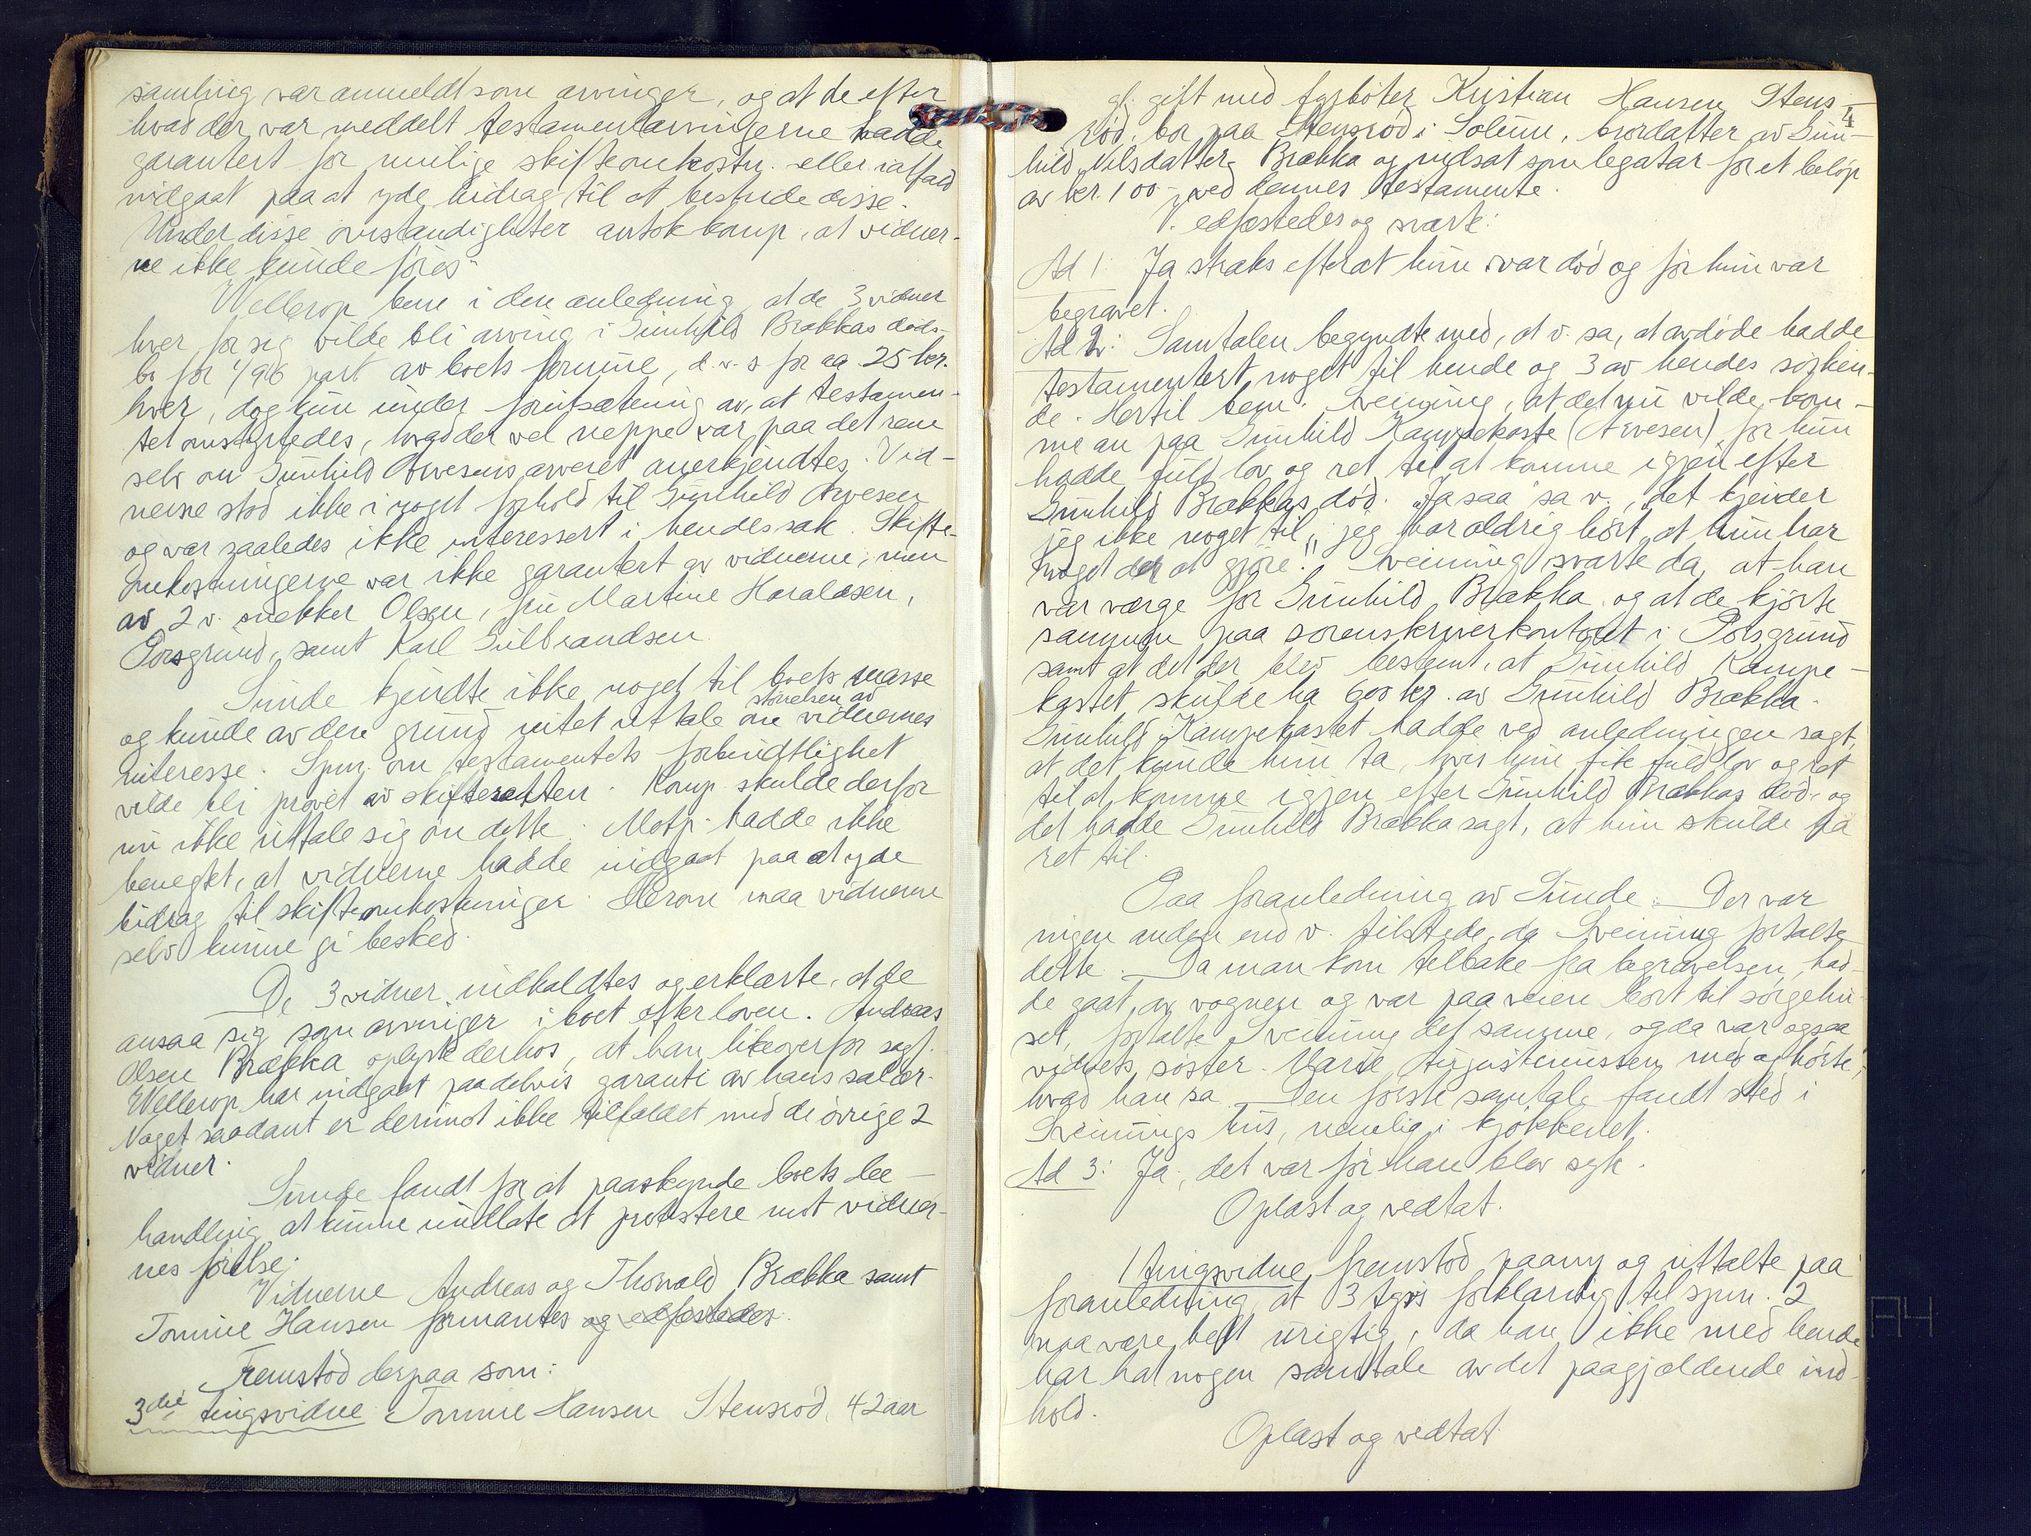 samling var anmeldt som arvinger, og at de efter
hvad der var meddelt testamentarvingerne hadde
garantert for mulige skifteomkostn. eller ialfald
indgaat paa at yde bidrag til at bestride disse.
Under disse omstændigheter antok komp, at vidner-
ne ikke kunde føres.
Wellerop bem i den anledning, at de 3 vidner
hver for sig vilde bli arving i Gunhild Brækkas døds-
bo for 1/96 part av boets formue, d.v.s for ca 25 kr.
hver, dog kun under forutsætning av, at testamen-
tet omstyrtedes, hvad der vel neppe var paa det rene
selv om Gunhild Arvesens arveret anerkjendtes. Vid-
nerne stod ikke i noget forhold til Gunhild Arvesen
og var saaledes ikke interessert i hendes sak. Skifte-
omkostningerne var ikke garantert av vidnerne, men
av 2 v. snekker Olsen, fru Martine Haraldsen,
Porsgrund, samt Karl Gulbrandsen.
Sunde kjendte ikke noget til boets masse
og kunde av den grund intet uttale om størrelsen av vidnernes
interesse. Spm. om testamentets forbindtlighet
vilde bli prøvet av skifteretten. Komp. skulde derfor
nu ikke uttale sig om dette. Motp. hadde ikke
benegtet, at vidnerne hadde indgaat paa at yde
bidrag til skifteomkostninger. Herom maa vidnerne
selv kunne gi besked.
De 3 vidner indkaldtes og erklærte, at de
ansaa sig som arvinger i boet efter loven. Andreas
Olsen Brækka oplyste derhos, at han likeoverfor sagf.
Wellerop har indgaat paa delvis garanti av hans salær.
Noget saadant er derimot ikke tilfældet med de øvrige 2
vidner.
Sunde fandt for at paaskynde boets be-
handling at kunne undlate at protestere mot vidner-
nes førelse.
Vidnerne Andreas og Thorvald Brækka samt
Tomine Hansen formantes og edfæstedes.
Fremstod derpaa som:
3die tingsvidne Tomine Hansen Stensrød, 42 aar
4
gl. gift med fyrbøter Kristian Hansen Stens-
rød, bor paa Stensrød i Solum, brordatter av Gun-
hild Nilsdatter Brækka og indsat som legatar for et beløp
av kr. 100 - ved dennes testamente.
V. edfæstedes og svarte:
Ad 1: Ja straks efterat hun var død og før hun var
begravet.
Ad 2: Samtalen begyndte med, at v. sa, at avdøde hadde
testamentert noget til hende og 3 av hendes søsken-
de. Hertil bem. Sveinung, at det nu vilde kom-
me an paa Gunhild Kampekaste (Arvesen), for hun
hadde fuld lov og ret til at komme igjen efter
Gunhild Brækkas død. "Ja saa" sa v., "det kjender
jeg ikke noget til, jeg har aldrig hørt, at hun har
noget der at gjøre." Sveinung svarte da, at han
var værge for Gunhild Brækka og at de kjørte
sammen paa sorenskriverkontoret i Porsgrund
samt at det der blev bestemt, at Gunhild Kampe-
kastet skulde ha 600 kr. av Gunhild Brækka.
Gunhild Kampekastet hadde ved anledningen sagt,
at det kunde hun ta, hvis hun fik fuld lov og ret
til at komme igjen efter Gunhild Brækkas død, og
det hadde Gunhild Brækka sagt, at hun skulde fa
ret til.
Paa foranledning av Sunde. Der var
ingen anden end v. tilstede, da Sveinung fortalte
dette. Da man kom tilbake fra begravelsen, had-
de gaat av vognen og var paa veien bort til sørgehu-
set, fortalte Sveinung det samme, og da var ogsaa
vidnets søster Marie Augustinussen med og hørte,
hvad han sa. Den første samtale fandt sted i
Sveinungs hus, nemlig i kjøkkenet.
Ad 3: Ja, det var før han blev syk.
Oplæst og vedtat.
1 tingsvidne fremstod paany og uttalte paa
foranledning, at 3 tgvs forklaring til spm. 2
maa være helt urigtig, da han ikke med hende
har hat nogen samtale av det paagjældende ind-
hold.
Oplæst og vedtat.